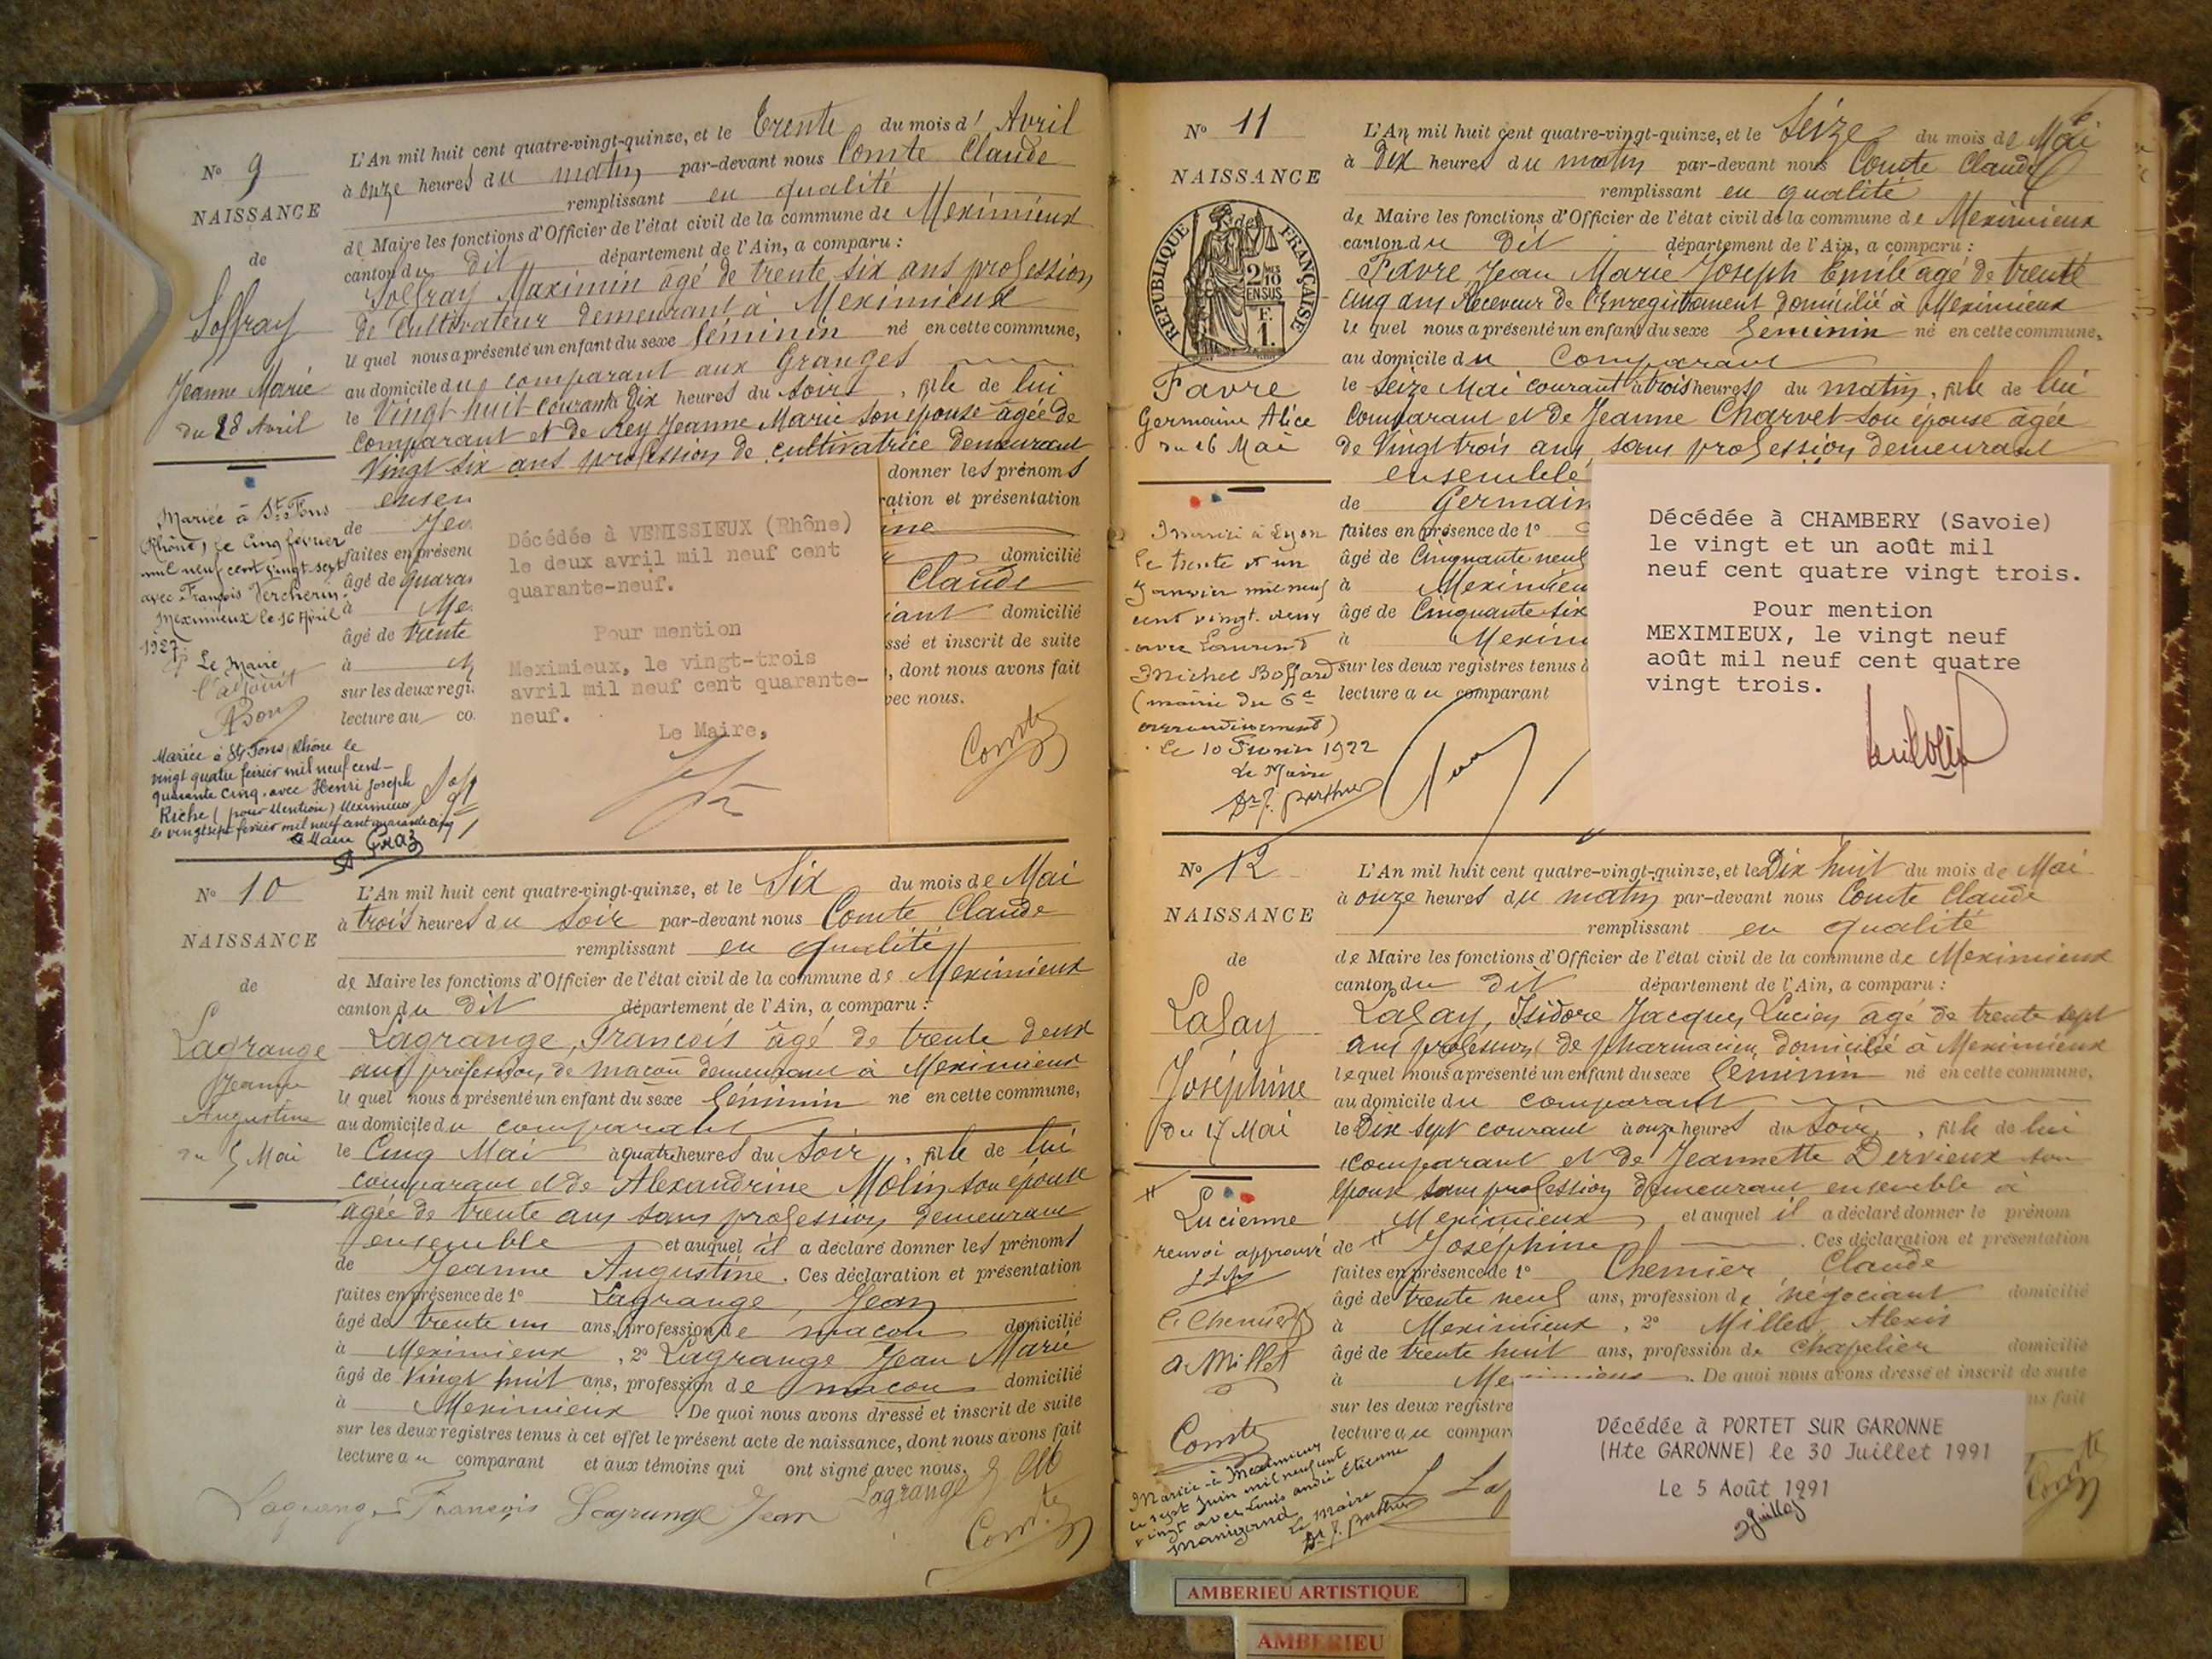 N° 9
NAISSANCE
de
Soffray
Jeanne Marie
du 28 Avril
L'An mil huit cent quatre-vingt-quinze, et le Trente du mois d' Avril
à onze heures du matin par-devant nous Comte Claude
remplissant en qualité
de Maire les fonctions d'Officier de l'état civil de la commune de Meximieux
canton du dit département de l'Ain, a comparu :
Soffray Maximin agé de trente six ans profession
de Cultivateur demeurant à Meximieux
le quel nous a présenté un enfant du sexe féminin né en cette commune,
au domicile du comparant aux Granges
le Vingt huit courant à Dix heures du soir, fille de lui
comparant et de Rey Jeanne Marie son épouse âgée de
Vingt six ans profession de cultivatrice demeurant
ensem donner les prénoms
de Jea ration et présentation
faites en présenc ine
âgé de quara domicilié
à Me Claude
âgé de trente iant domicilié
à M ssé et inscrit de suite
sur les deux regi , dont nous avons fait
lecture au co vec nous.
Comte
Mariée à St Fons
(Rhône) le cinq février
mil neuf cent vingt-sept
avec François Vercherin.
Meximieux le 16 Avril
1927
Le Maire
l'adjoint
Mariée à St Fons (Rhône le
vingt quatre février mil neuf cent
quarante cinq avec Henri Joseph
Riche (pour Mention) Meximieux
le vingt sept février mil neuf cent quarante cinq
Le Maire
Décédée à VENISSIEUX (Rhône)
le deux avril mil neuf cent
quarante-neuf.
Pour mention
Meximieux, le vingt-trois
avril mil neuf cent quarante-
neuf.
Le Maire,
N° 10
NAISSANCE
de
Lagrange
Jeanne
Augustine
du 5 Mai
L'An mil huit cent quatre-vingt-quinze, et le Six du mois de Mai
à trois heures du soir par-devant nous Comte Claude
remplissant en qualité
de Maire les fonctions d'Officier de l'état civil de la commune de Meximieux
canton du dit département de l'Ain, a comparu :
Lagrange, François âgé de trente deux
ans profession de maçon demeurant à Meximieux
le quel nous a présenté un enfant du sexe féminin né en cette commune,
au domicile du comparant
le Cinq Mai à quatre heures du Soir, fille de lui
comparant et de Alexandrine Molin son épouse
agée de trente ans sans profession demeurant
ensemble et auquel il a déclaré donner les prénoms
de Jeanne Augustine. Ces déclaration et présentation
faites en présence de 1° Lagrange, Jean
âgé de trente un ans, profession de maçon domicilié
à Meximieux, 2° Lagrange Jean Marie
âgé de Vingt huit ans, profession de maçon domicilié
à Meximieux. De quoi nous avons dressé et inscrit de suite
sur les deux registres tenus à cet effet le présent acte de naissance, dont nous avons fait
lecture au comparant et aux témoins qui ont signé avec nous.
Lagrange François Lagrange Jean Lagrange
Comte
N° 11
NAISSANCE
de
RÉPUBLIQUE FRANÇAISE
2/10
EN SUS
F.
1.
Favre
Germaine Alice
du 16 Mai
L'An mil huit cent quatre-vingt-quinze, et le Seize du mois de Mai
à Dix heures du matin par-devant nous Comte Claude
remplissant en qualité
de Maire les fonctions d'Officier de l'état civil de la commune de Meximieux
canton du dit département de l'Ain, a comparu :
Favre, Jean Marie Joseph Emile agé de trente
cinq ans Receveur de l'Enregistrement domicilié à Meximieux
le quel nous a présenté un enfant du sexe féminin né en cette commune,
au domicile du Comparant
le Seize Mai courant à trois heures du matin, fille de lui
Comparant et de Jeanne Charvet son épouse âgée
de Vingt trois ans, sans profession demeurant
ensemble
de Germain
faites en présence de 1°
âgé de Cinquante neuf
à Meximieu
âgé de Cinquante six
à Meximi
sur les deux registres tenus à
lecture au comparant
Mariée à Lyon
le trente et un
Janvier mil neuf
cent vingt-deux
avec Laurent
Michel Boffard
(mairie du 6e
arrondissement)
Le 10 Février 1922
Le Maire
Dr J. Berthier
Décédée à CHAMBERY (Savoie)
le vingt et un août mil
neuf cent quatre vingt trois.
Pour mention
MEXIMIEUX, le vingt neuf
août mil neuf cent quatre
vingt trois.
N° 12
NAISSANCE
de
Lafay
Joséphine
du 17 Mai
L'An mil huit cent quatre-vingt-quinze, et le Dix huit du mois de Mai
à onze heures du matin par-devant nous Comte Claude
remplissant en qualité
de Maire les fonctions d'Officier de l'état civil de la commune de Meximieux
canton du dit département de l'Ain, a comparu :
Lafay, Isidore Jacques Lucien âgé de trente sept
ans profession de pharmacien, domicilié à Meximieux
lequel nous a présenté un enfant du sexe féminin né en cette commune,
au domicile du comparant
le Dix sept courant à onze heures du soir, fille de lui
comparant et de Jeannette Dervieux son
épouse sans profession demeurant ensemble à
Meximieux et auquel il a déclaré donner le prénom
de Joséphine. Ces déclaration et présentation
faites en présence de 1° Chemier, Claude
âgé de trente neuf ans, profession de négociant domicilié
à Meximieux, 2° Millet, Alexis
âgé de trente huit ans, profession de chapelier domicilié
à Meximieux. De quoi nous avons dressé et inscrit de suite
sur les deux registre ns fait
lecture au compar
Lucienne
renvoi approuvé
C. Chemier
A. Millet
Comte
Mariée à Meximieux
le sept Juin mil neuf cent
vingt avec Louis André Etienne
Le Maire
Dr J. Berthier
Comte
Décédée à PORTET SUR GARONNE
(Hte GARONNE) le 30 Juillet 1991
Le 5 Août 1991
AMBERIEU ARTISTIQUE
AMBERIEU